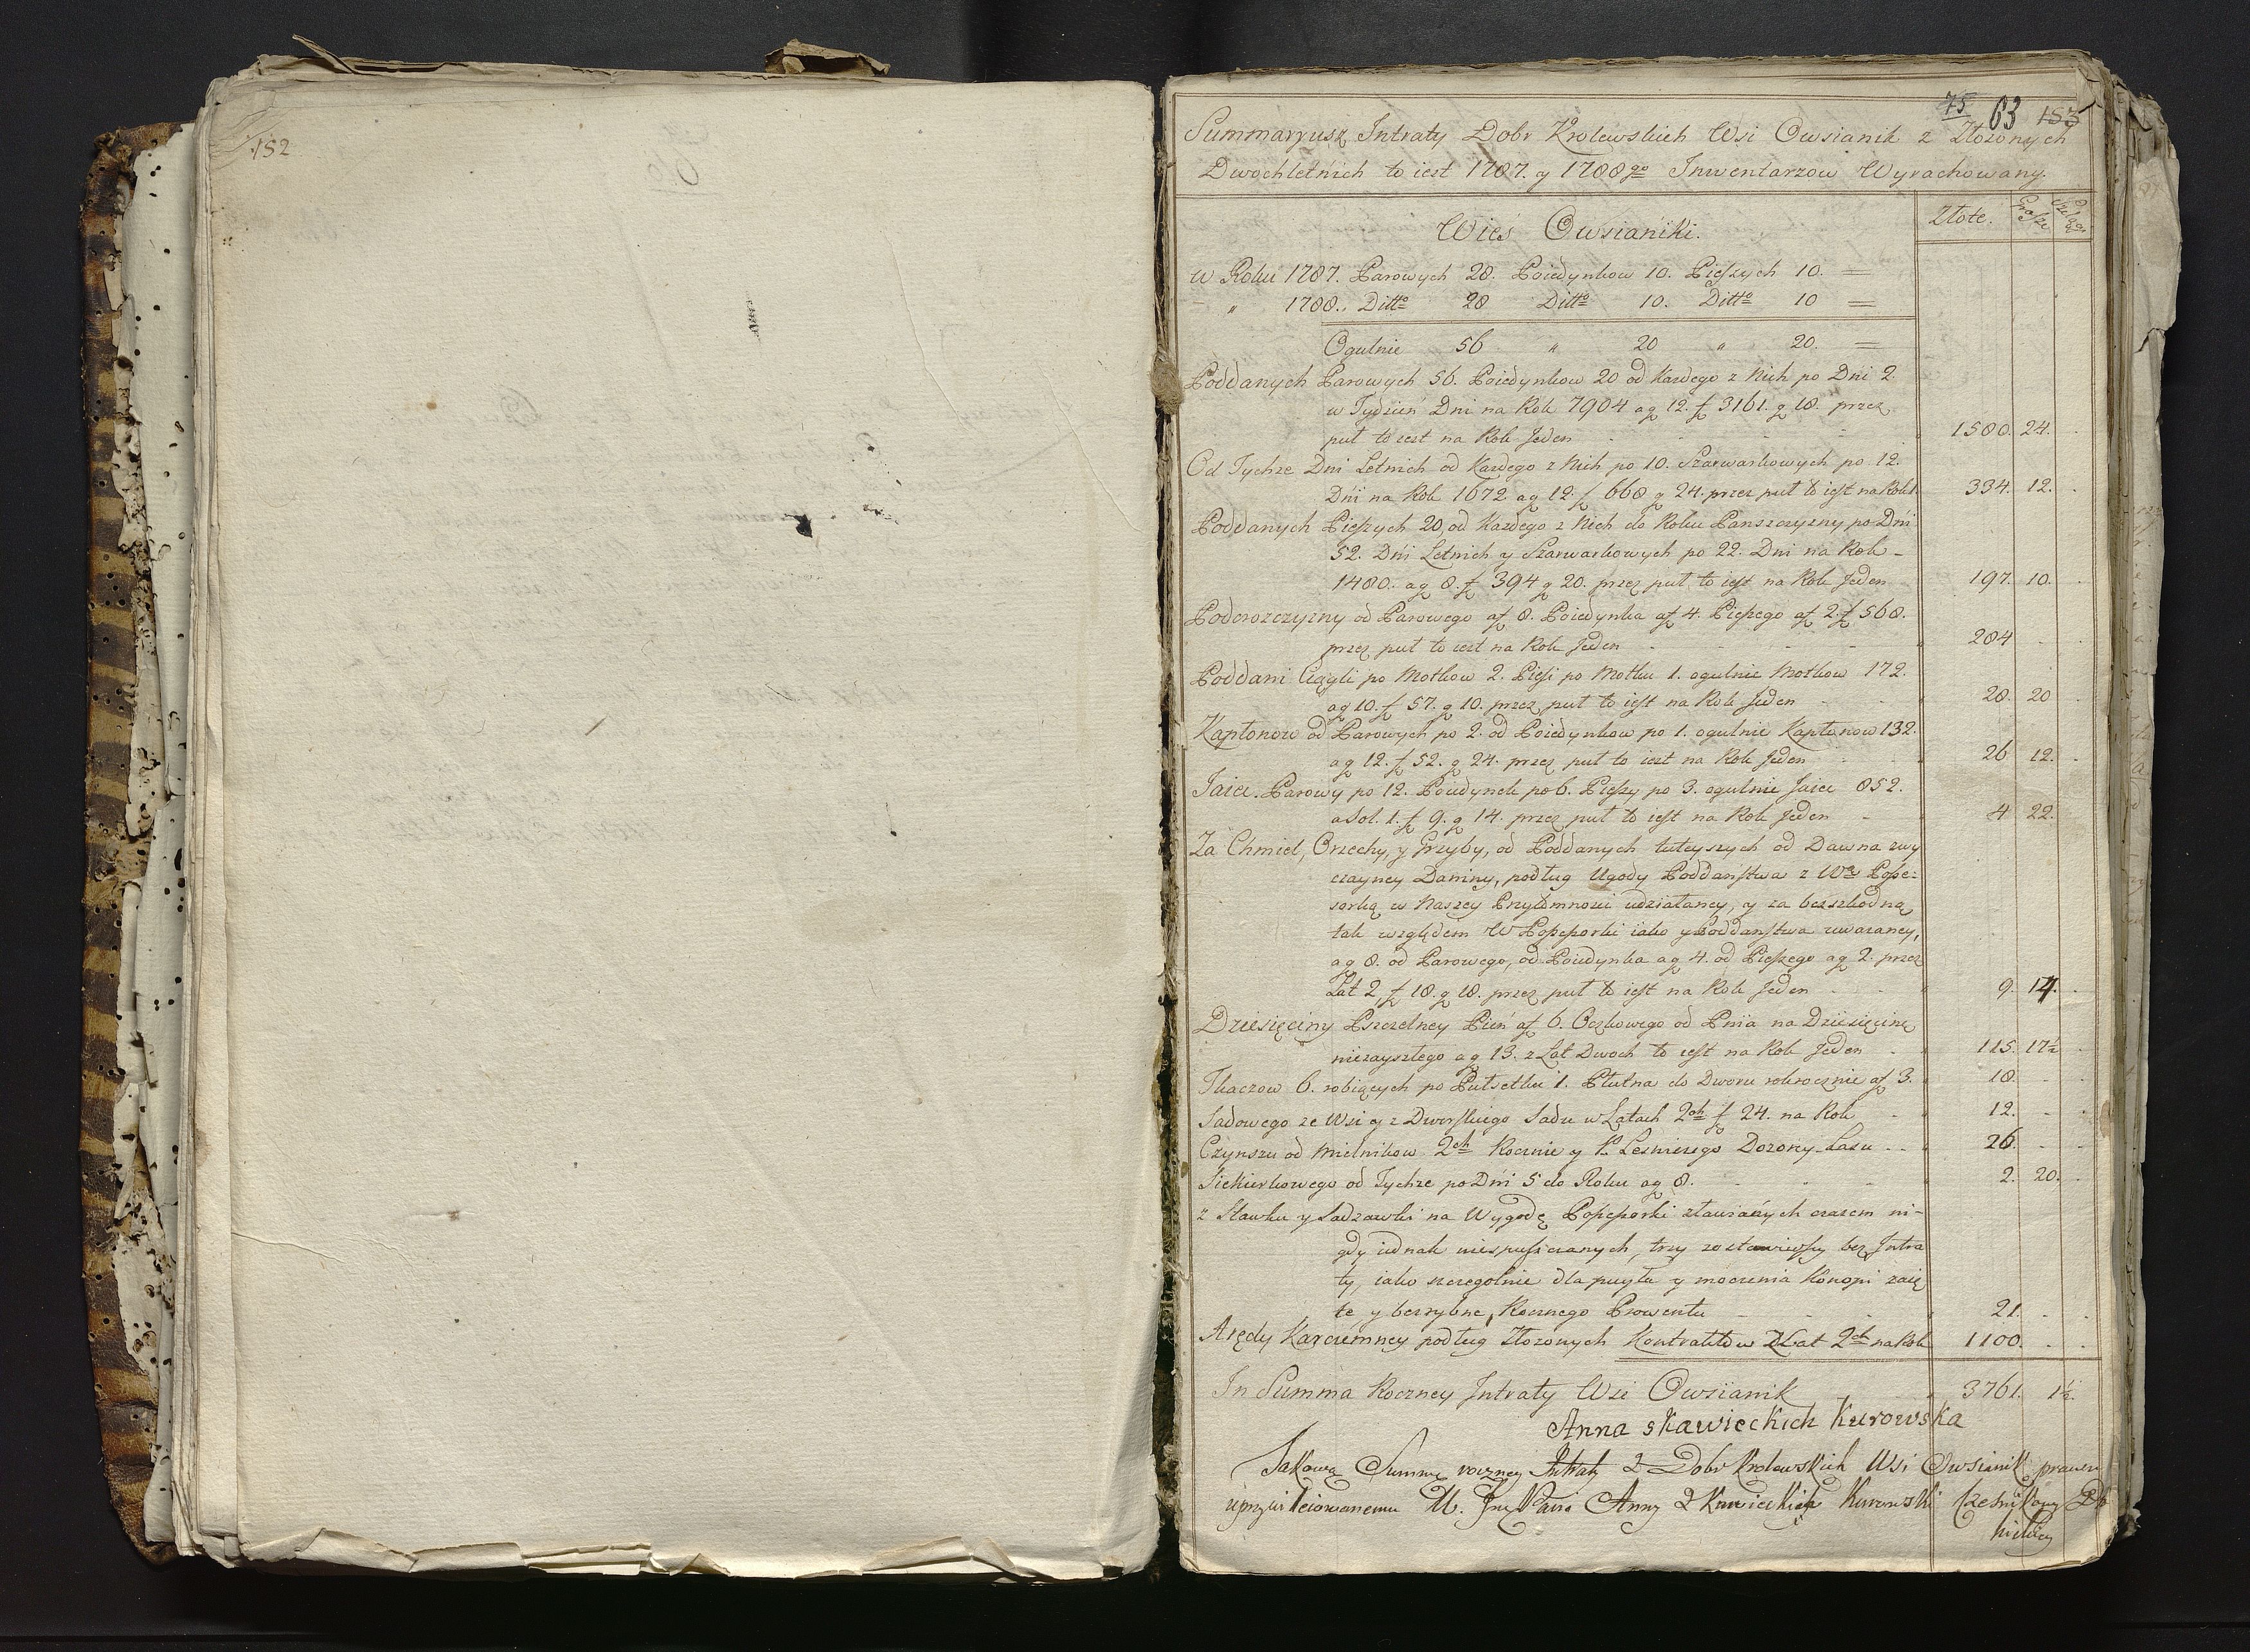 152
75 63 153
Summaryusz Intraty Dobr Krolewskich Wsi Owsianik z Złożonych
Dwochletnich to iest 1787. y 1788go Inwentarzow Wyrachowany.
Złote. Grosze Szelągi
Wieś Owsianiki.
w Roku 1787. Parowych 28. Poiedynkow 10. Pieszych 10. =
" 1788. Ditto 28 Ditto 10. Ditto 10 =
Ogulnie 56 " 20 " 20. =
Poddanych Parowych 56. Poiedynkow 20 od Kazdego z Nich po Dni 2
w Tydzień Dni na Rok 7904 a g 12. f 3161. g 18. przez
puł to iest na Rok Jeden 1580. 24.
Od Tychze Dni Letnich od Kazdego z Nich po 10. Szarwarkowych po 12.
Dni na Rok 1672 a g 12. f 668 g 24. przez puł to iest na Rok 1. 334. 12.
Poddanych Pieszych 20, od Kazdego z Nich do Roku Panszczyzny po Dni
52. Dni Letnich y Szarwarkowych po 22. Dni na Rok -
1480. a g 8. f 394 g 20. przez puł to iest na Rok Jeden 197. 10.
Podorozczyzny od Parowego a f 8. Poiedynka a f 4. Pieszego a f 2. f 568.
przez puł to iest na Rok Jeden 284
Poddani Ciągli po Motkow 2. Piesi po Motku 1. ogulnie Motkow 172.
a g 10. f 57. g 10. przez puł to iest na Rok Jeden 28. 20
Kapłonow od Parowych po 2. od Poiedynkow po 1. ogulnie Kapłonow 132.
a g 12. f 52. g 24. przez puł to iest na Rok Jeden 26 12.
Jaiec. Parowy po 12. Poiedynek po 6. Pieszy po 3. ogulnie Jaiec 852.
a Sol. 1. f 9. g 14. przez puł to iest na Rok Jeden 4 22.
Za Chmiel, Orzechy, y Grzyby, od Poddanych tuteyszych od Dawna zwy
czayney Daniny, podług Ugody Poddaństwa z Wą Posse-
sorką w Naszey Przytomności udziałaney, y za bezszkodną
tak względem W Possessorki iako y Poddaństwa uwazaney,
a g 8. od Parowego, od Poiedynka a g 4. od Pieszego a g 2. przez
Lat 2 f 18. g 18. przez puł to iest na Rok Jeden 9. 14.
Dziesięciny Pszczelney Pień a f 6. Oczkowego od Pnia na Dziesięcinę
niezayszłego a g 13. z Lat Dwoch to iest na Rok Jeden 115. 17½
Tkaczow 6. robiących po Pułsetku 1. Płutna do Dworu rokrocznie a f 3. 18.
Sadowego ze Wsi y z Dworskiego Sadu w Latach 2ch f 24. na Rok 12.
Czynszu od Mielnikow 2ch Rocznie y Leśniczego Dozorcy Lasu 26.
Siekierkowego od Tychze po Dni 5 do Roku a g 8. 2. 20.
z Stawku y Sadzawki na Wygodę Possessorki zławianych czasem ni-
gdy iednak niespuszczanych, trzy zostawiwszy bez Intra
ty, iako szczegolnie dla pusyła y moczenia Konopi zaię
te y bezrybne, Rocznego Prowentu 21.
Arędy Karczemney podług Złozonych Kontraktow z Lat 2ch na Rok 1100.
In Summa Roczney Intraty Wsi Owsianik 3761. 1½.
Anna skawieckich Kurowska
Jakową Summę roczney Intraty z Dobr Krolewskich Wsi Owsianik prawem
uprzywileiowanemu W. Jmc Pani Anny z Kawieckich Kurowski Czesnikowy